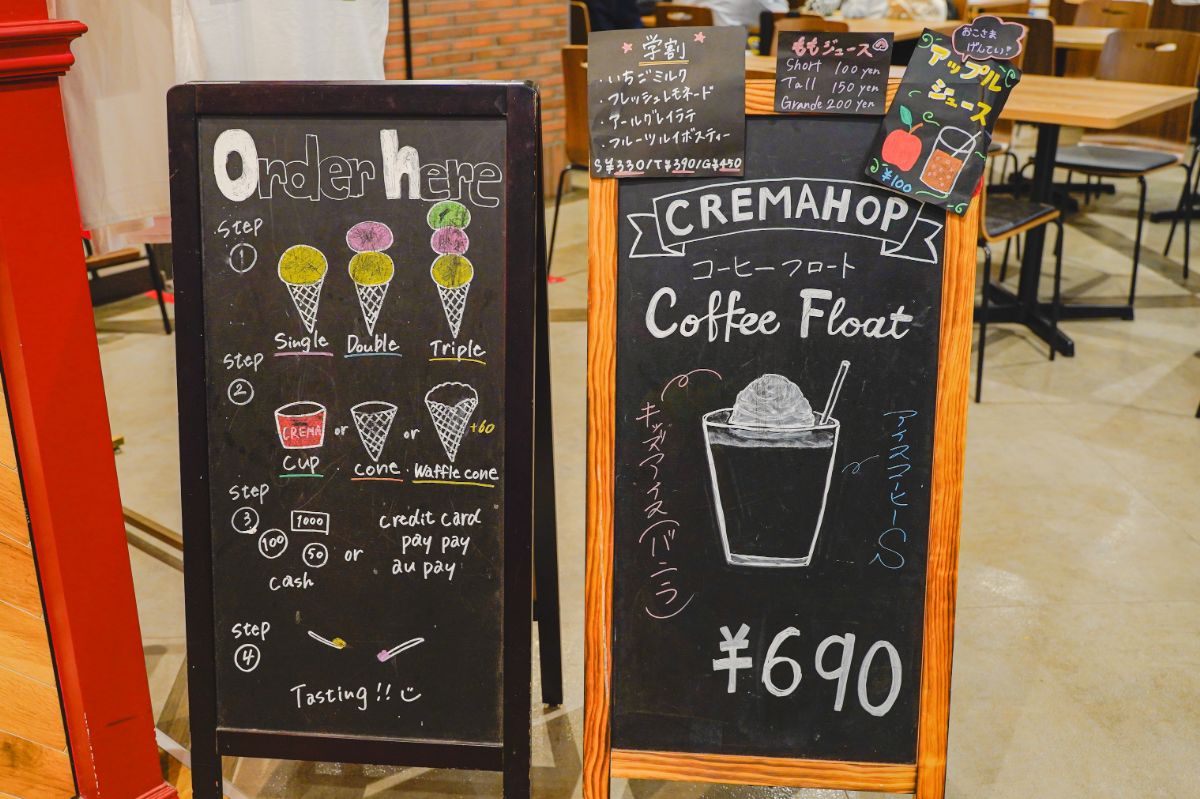 Order Here
Step
1
Single Double Triple
Step
2
CREMA or or +60
Cup Cone Waffle cone
Step
3
1000
100
50
or
cash
credit card
pay pay
au pay
Step
4
Tasting!!
学割
・いちごミルク
・フレッシュレモネード
・アールグレイラテ
・フルーツルイボスティー
S¥330/T¥390/G¥450
ももジュース
Short 100yen
Tall 150yen
Grande 200yen
おこさま
げんてい!
アップル
ジュース
¥100
CREMAHOP
コーヒーフロート
Coffee Float
キッズアイス(バニラ)
アイスコーヒーS
¥690